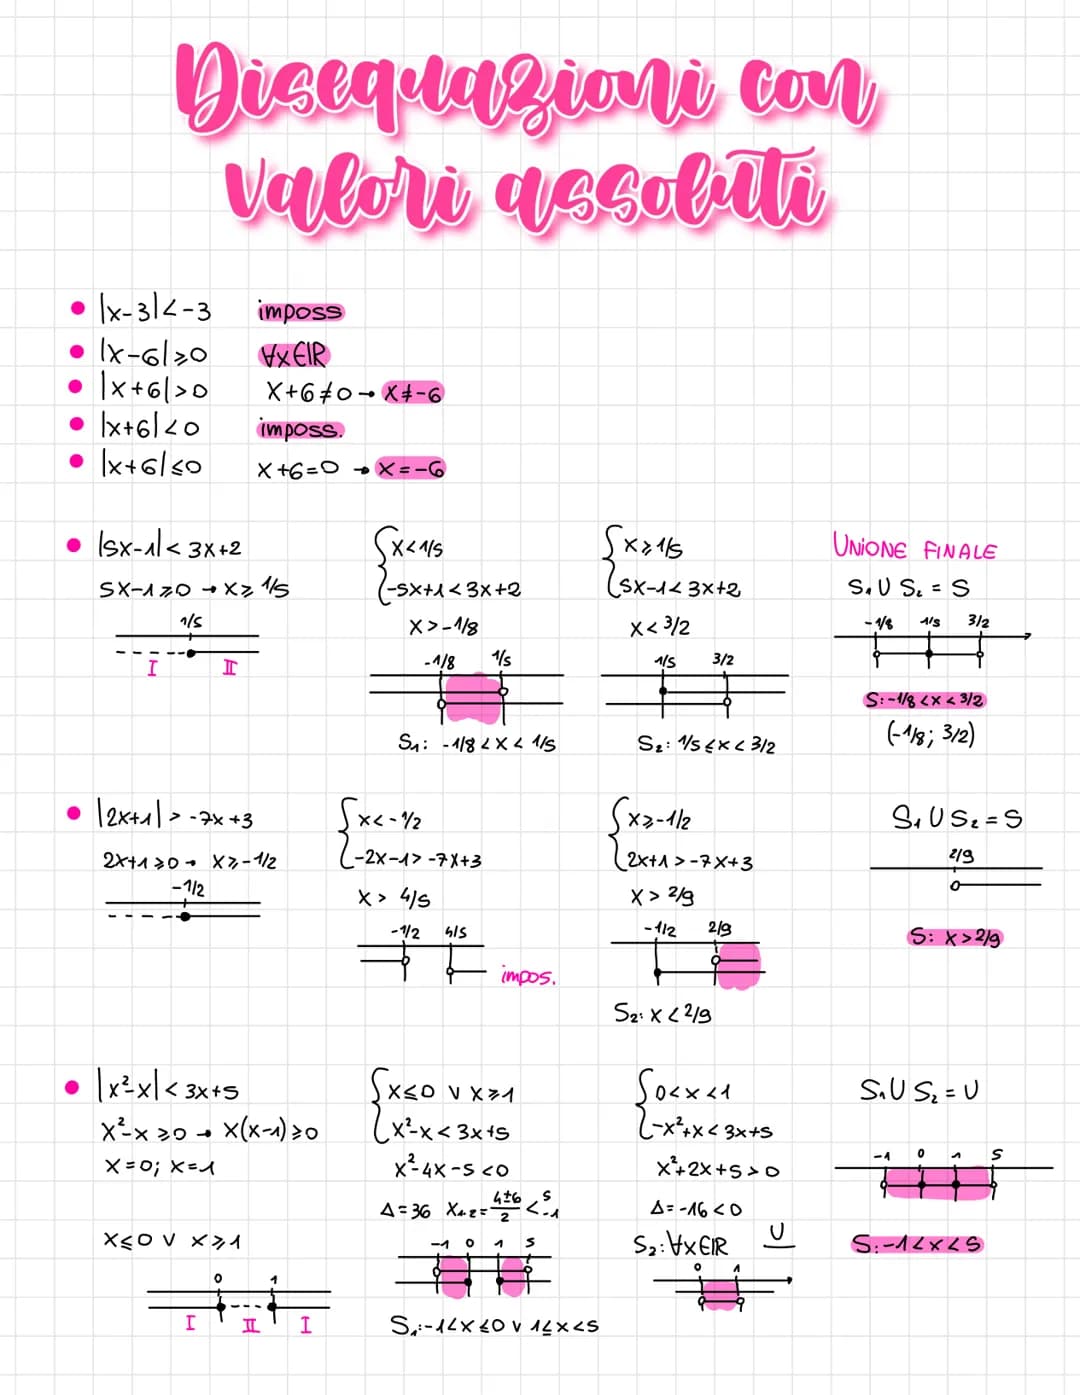 Disequazioni con
valori assoluti
• |x-3|<-3 imposs
• |x-6|⩾0 ∀x∈ℝ
• |x+6|>0 x+6≠0→x≠-6
• |x+6|<0 imposs.
• |x+6|≤0 x+6=0 → x=-6
• |5x-1|<3x+2
5x-1⩾0 → x⩾1/5
1/5
I II
{x<1/5
-5x+1<3x+2
x>-1/8
-1/8 1/5
S₁: -1/8<x<1/5
{x⩾1/5
5x-1<3x+2
x<3/2
1/5 3/2
S₂: 1/5≤x<3/2
UNIONE FINALE
S₁US₂=S
-1/8 1/5 3/2
S:-1/8<x<3/2
(-1/8; 3/2)
• |2x+1|>-7x+3
2x+1⩾0→ x⩾-1/2
-1/2
{x<-1/2
-2x-1>-7x+3
x>4/5
-1/2 4/5
impos.
{x⩾-1/2
2x+1>-7x+3
x>2/9
-1/2 2/9
S₂: x<2/9
S₁US₂=S
2/9
S: x>2/9
• |x²-x|<3x+5
x²-x⩾0→ x(x-1)⩾0
x=0; x=1
x≤0 v x⩾1
0 1
I II I
{x≤0 v x⩾1
x²-x<3x+5
x²-4x-5<0
Δ=36 x₁,₂=4±6/2 < 5 -1
-1 0 1 5
S₁:-1<x≤0 v 1≤x<5
{0<x<1
-x²+x<3x+5
x²+2x+5>0
Δ=-16<0
S₂:∀x∈ℝ U
0 1
S₁US₂=U
-1 0 1 5
S:-1<x<5